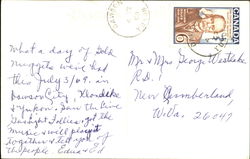 CANADA
6
What a day of Gold
Nuggets we've had
this July 3/69. in
Dawson City, Klondike
& Yukon. Saw the live
Gaslight Follies, got the
music & will play it
together & tell you of
the people. Edna & Ed
Mr & Mrs George Westlake
R.D. 1
New Cumberland,
W. Va. 26047